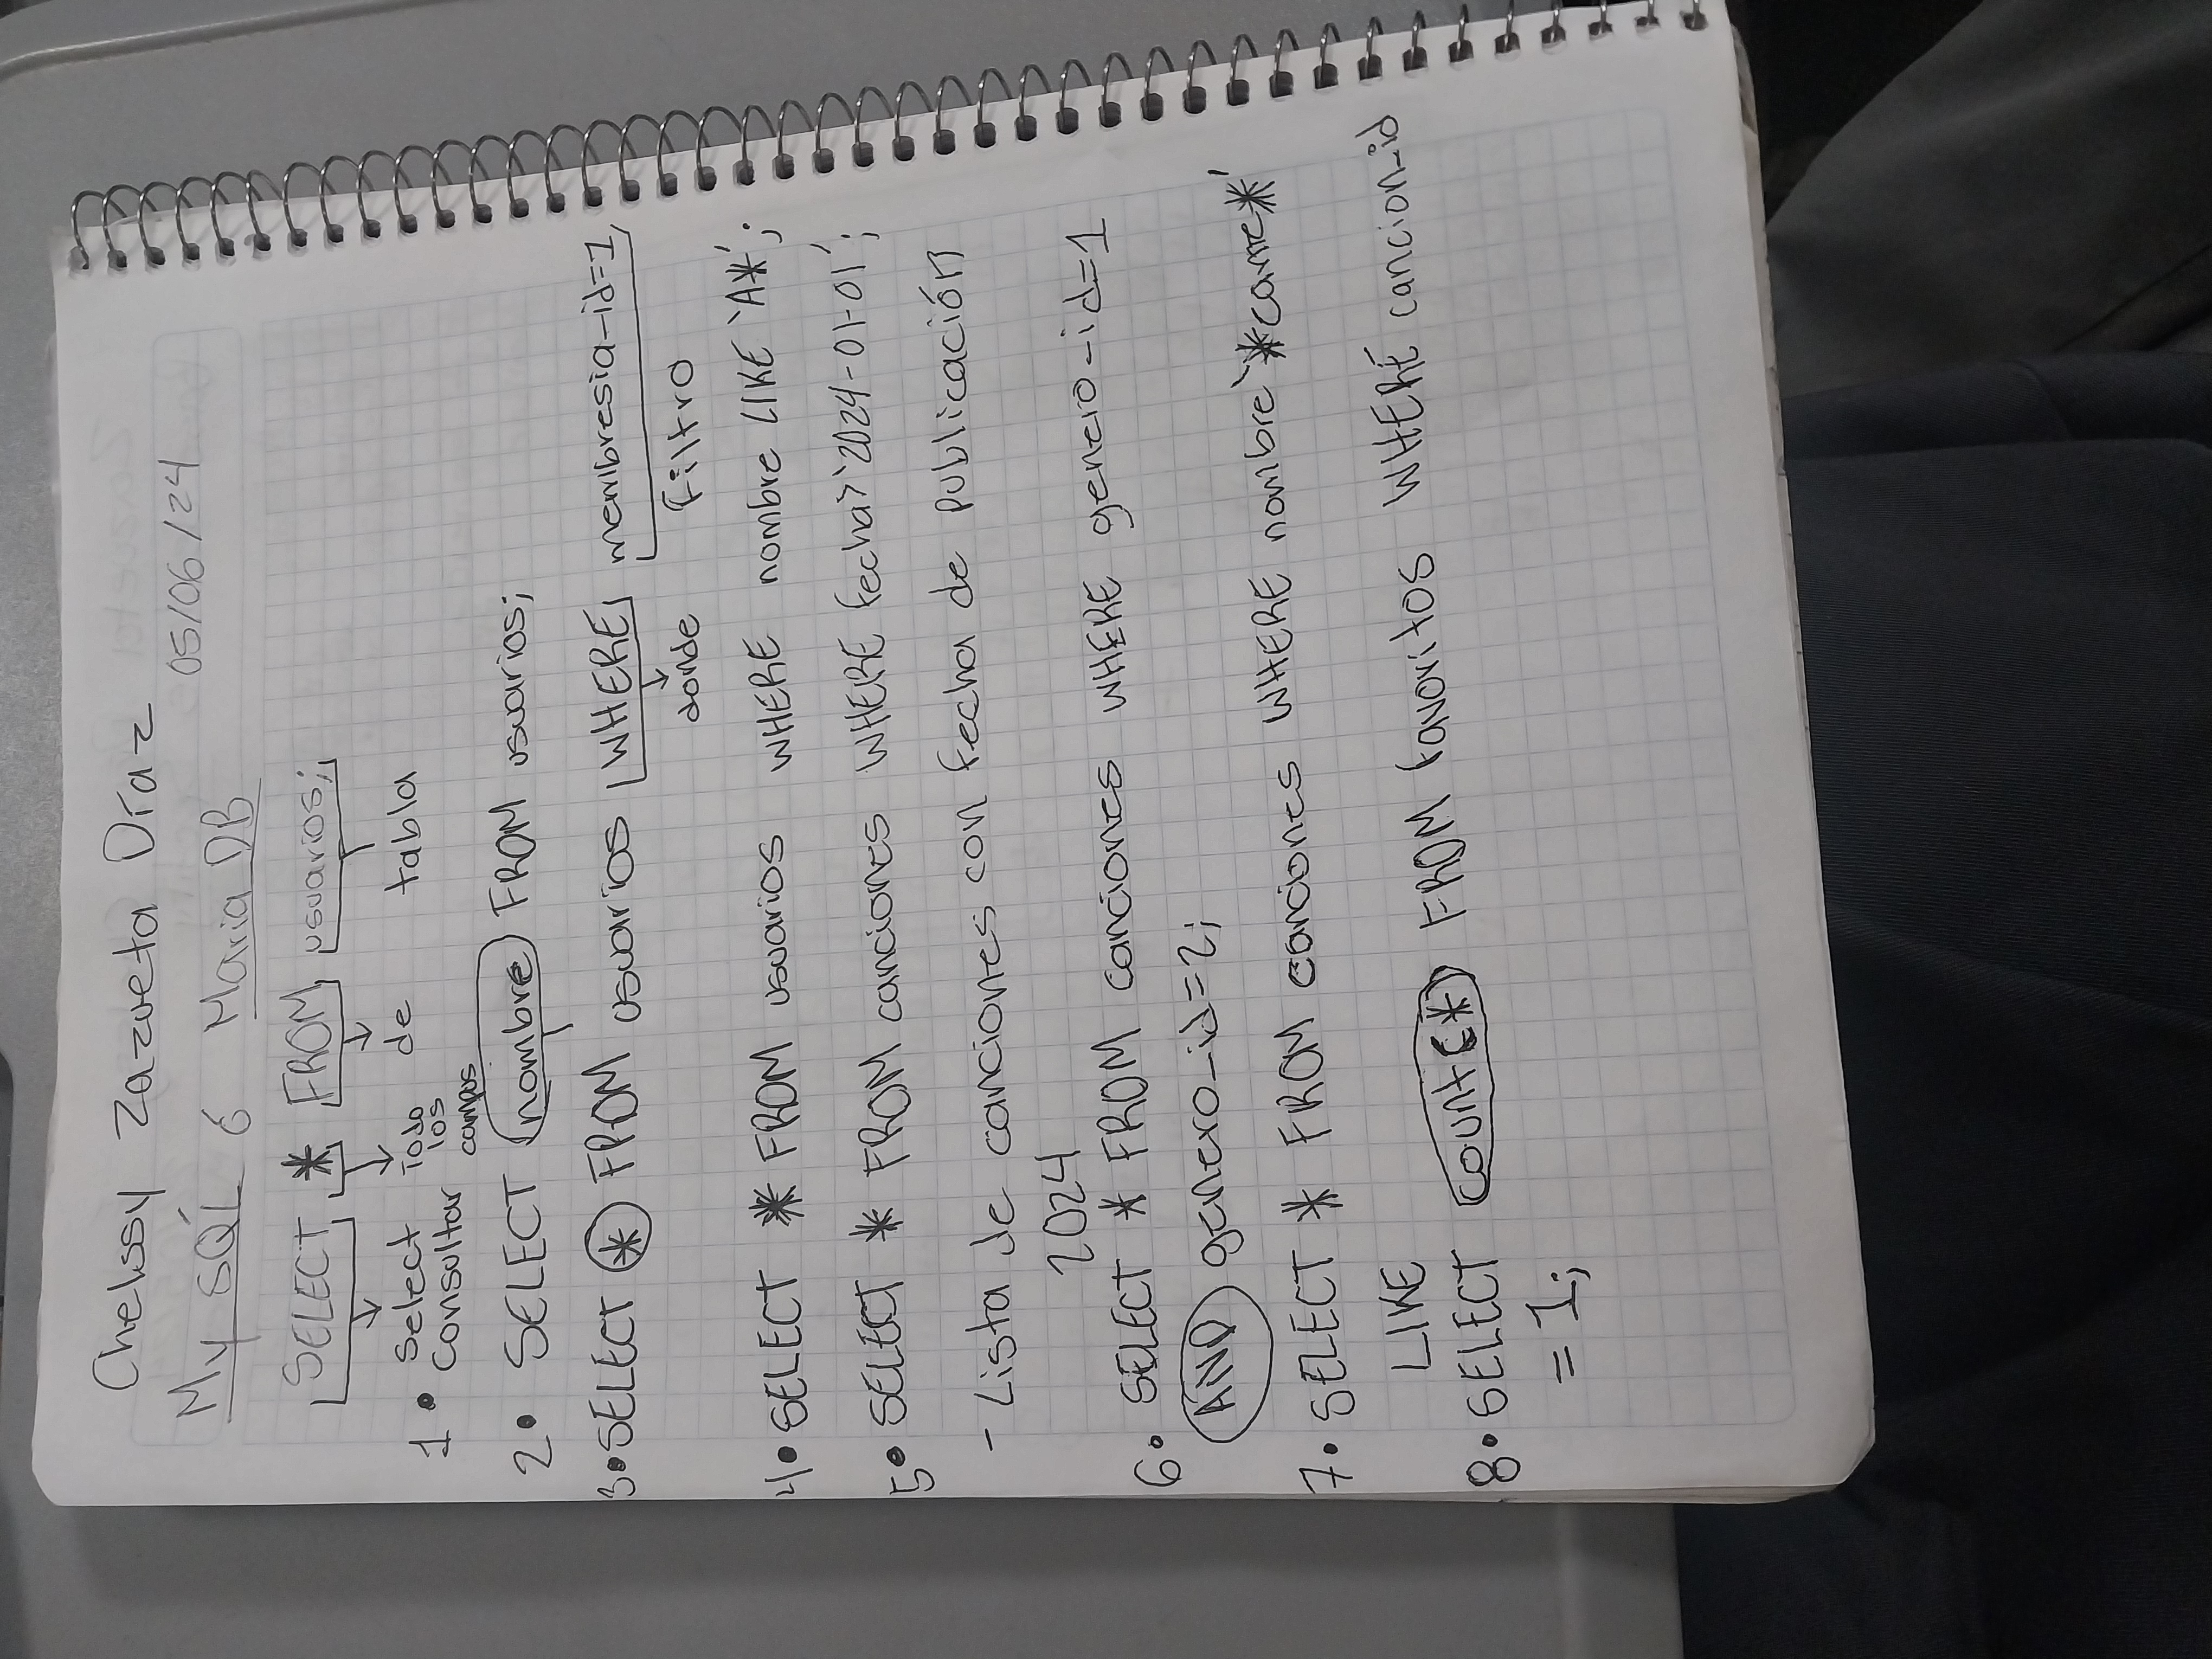 Chelssy Zazueta Díaz
05/06/24
My SQL ó Maria DB
SELECT * FROM usuarios;
1• Select Todo de tabla
consultar los
campos
2• SELECT nombre FROM usuarios;
3• SELECT * FROM usuarios WHERE membresia_id=1
donde filtro
4• SELECT * FROM usuarios WHERE nombre LIKE 'A*';
5• SELECT * FROM canciones WHERE fecha>'2024-01-01';
- Lista de canciones con fecha de publicación
2024
6• SELECT * FROM canciones WHERE genero_id=1
AND genero_id=2;
7• SELECT * FROM canciones WHERE nombre '*came*'
LIKE
8• SELECT count(*) FROM favoritos WHERE cancion_id
= 1;